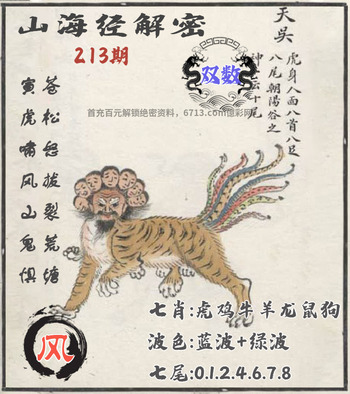 山海经解密
213期
天吴
虎身人面八首八足
八尾朝陽谷之
神
云十尾
双数
首充百元解锁绝密资料，6713.com
彩网
苍松怒拔裂荒塘
寅虎啸风山鬼惧
七肖:虎鸡牛羊龙鼠狗
波色:蓝波+绿波
七尾:0.1.2.4.6.7.8
风